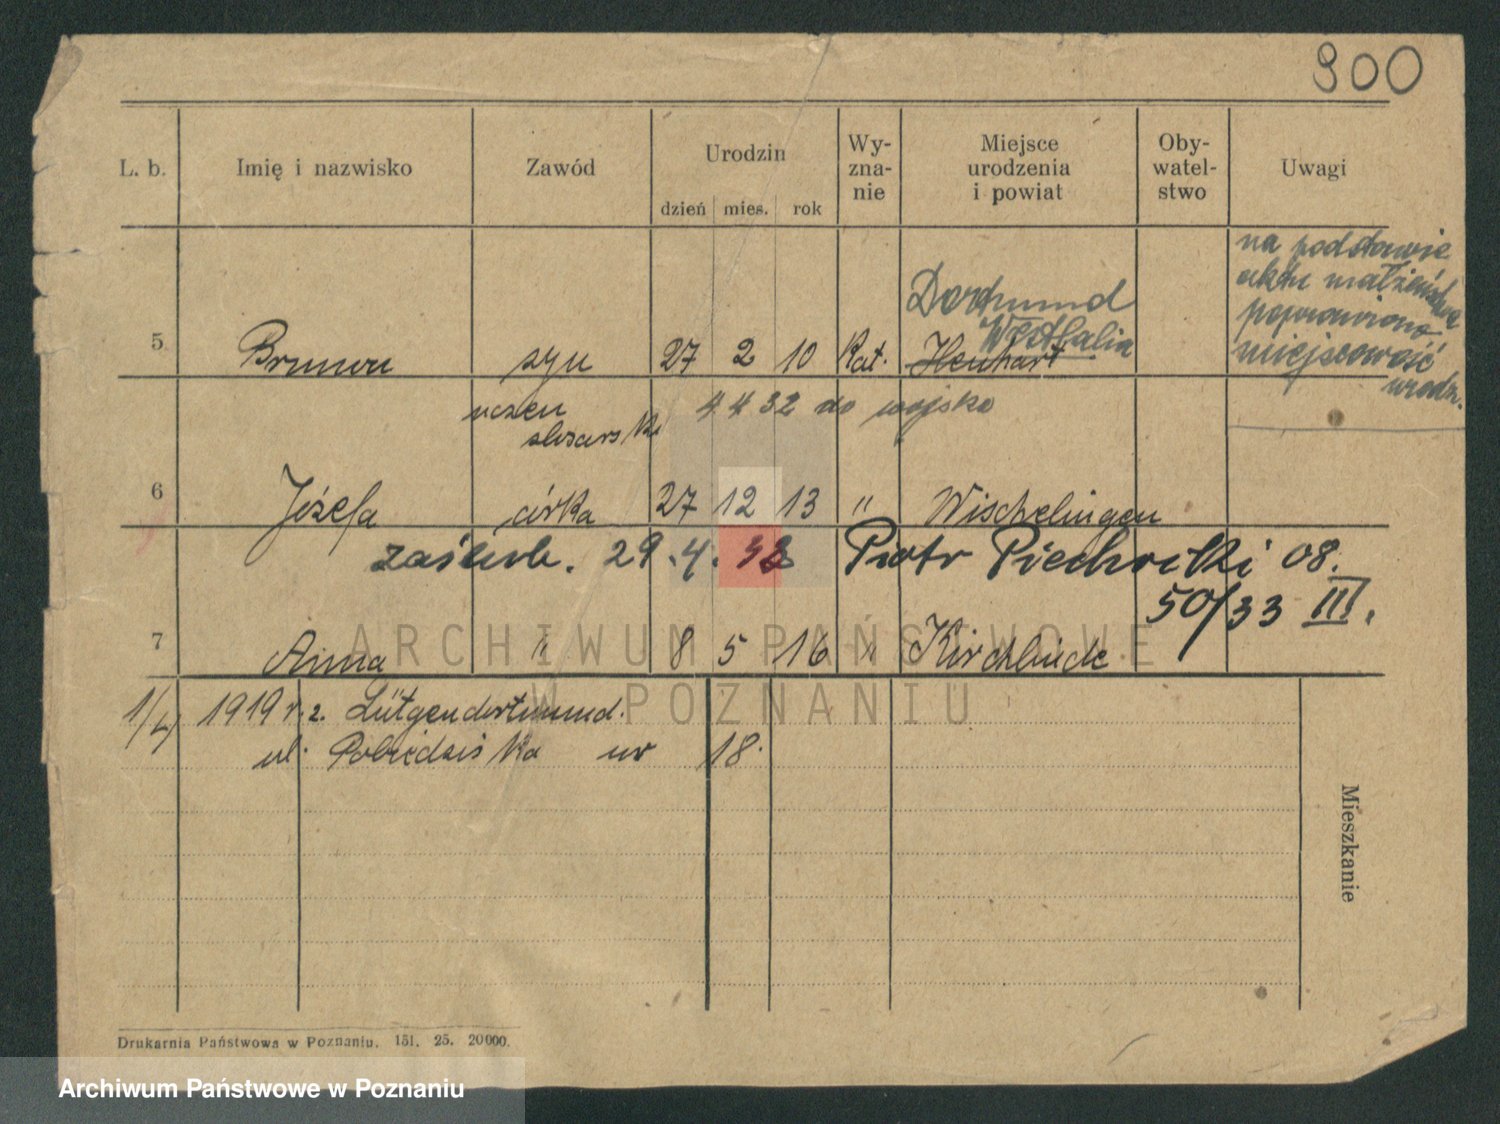 900
L. b. Imię i nazwisko Zawód Urodzin Wy-zna-nie Miejsce urodzenia i powiat Oby-watel-stwo Uwagi
dzień mies. rok
na podstawie
aktu małżeństwa
poprawiono
miejscowość
urodz.
Dortmund
Westfalia
5 Brunon syn 27 2 10 Kat. Henhart
uczeń 4 4 32 do wojska
ślusarski
6 Józefa córka 27 12 13 " Wischelingen
zaślub. 29.4.33 Piotr Piechocki 08.
50/33 III.
7 Anna " 8 5 16 " Kirchlinde
1/4 1919 r. z. Lütgendortmund.
ul. Pobiedziska nr 18.
Mieszkanie
ARCHIWUM PAŃSTWOWE
W POZNANIU
Drukarnia Państwowa w Poznaniu. 151. 25. 20000.
Archiwum Państwowe w Poznaniu